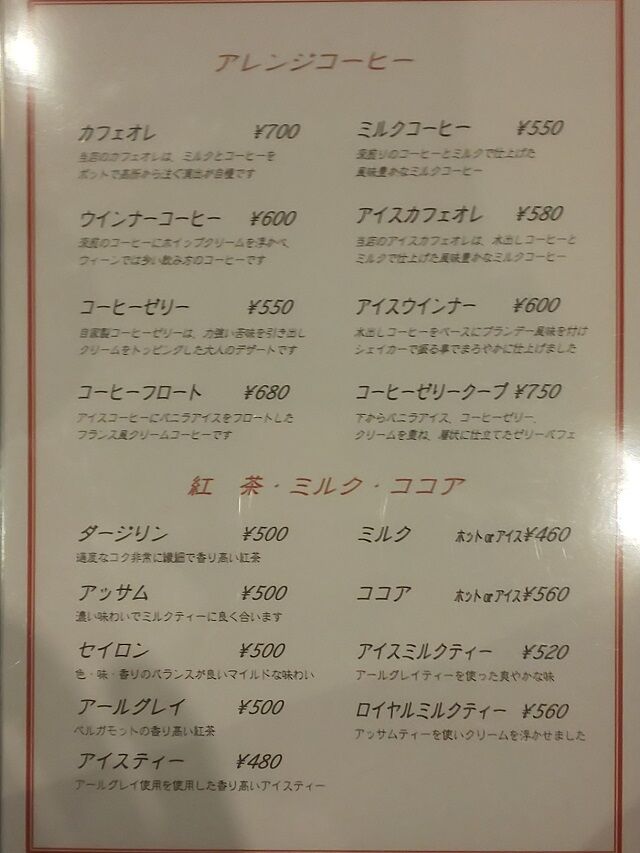 アレンジコーヒー
カフェオレ ¥700
当店のカフェオレは、ミルクとコーヒーを
ポットで高所から注ぐ演出が自慢です
ウインナーコーヒー ¥600
深煎のコーヒーにホイップクリームを浮かべ、
ウィーンでは多い飲み方のコーヒーです
コーヒーゼリー ¥550
自家製コーヒーゼリーは、力強い苦味を引き出し
クリームをトッピングした大人のデザートです
コーヒーフロート ¥680
アイスコーヒーにバニラアイスをフロートした
フランス風クリームコーヒーです
ミルクコーヒー ¥550
深煎りのコーヒーとミルクで仕上げた
風味豊かなミルクコーヒー
アイスカフェオレ ¥580
当店のアイスカフェオレは、水出しコーヒーと
ミルクで仕上げた風味豊かなミルクコーヒー
アイスウインナー ¥600
水出しコーヒーをベースにブランデー風味を付け
シェイカーで振る事でまろやかに仕上げました
コーヒーゼリークープ ¥750
下からバニラアイス、コーヒーゼリー、
クリームを重ね、層状に仕立てたゼリーパフェ
紅 茶・ミルク・ココア
ダージリン ¥500
適度なコク非常に繊細で香り高い紅茶
アッサム ¥500
濃い味わいでミルクティーに良く合います
セイロン ¥500
色・味・香りのバランスが良いマイルドな味わい
アールグレイ ¥500
ベルガモットの香り高い紅茶
アイスティー ¥480
アールグレイ使用を使用した香り高いアイスティー
ミルク ホットorアイス¥460
ココア ホットorアイス¥560
アイスミルクティー ¥520
アールグレイティーを使った爽やかな味
ロイヤルミルクティー ¥560
アッサムティーを使いクリームを浮かせました